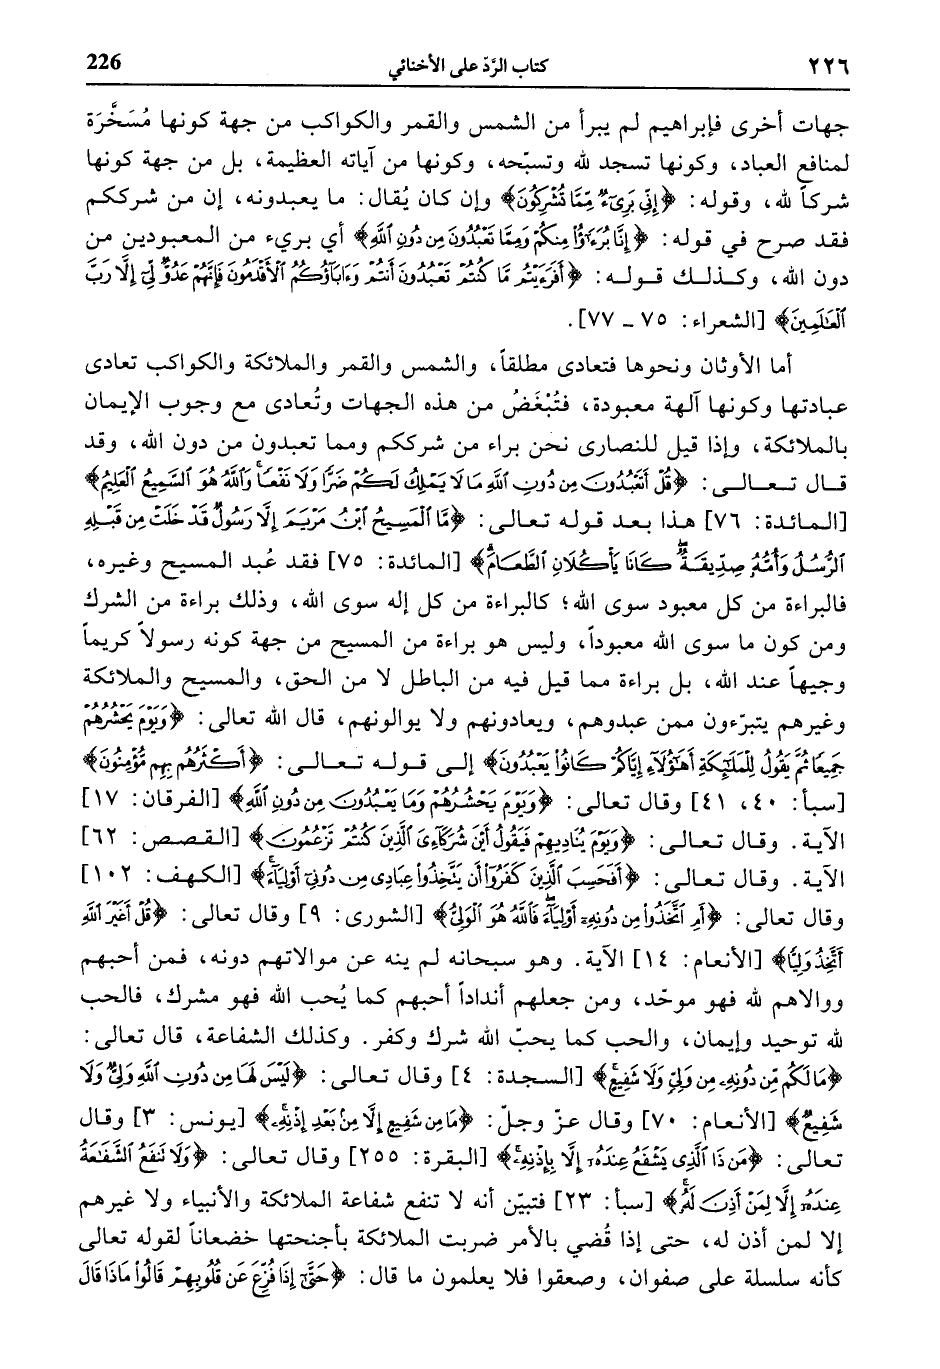 ٢٢٦ كتاب الرَّدّ على الأخنائي 226
جهات أخرى فإبراهيم لم يبرأ من الشمس والقمر والكواكب من جهة كونها مُسَخَّرَة
لمنافع العباد، وكونها تسجد لله وتسبّحه، وكونها من آياته العظيمة، بل من جهة كونها
شركاً لله، وقوله: ﴿إِنِّي بَرِيءٌ مِّمَّا تُشْرِكُونَ﴾ وإن كان يُقال: ما يعبدونه، إن من شرككم
فقد صرح في قوله: ﴿إِنَّا بُرَءَٰٓؤُا۟ مِنكُمْ وَمِمَّا تَعْبُدُونَ مِن دُونِ ٱللَّهِ﴾ أي بريء من المعبودين من
دون الله، وكـذلـك قـولـه: ﴿أَفَرَءَيْتُم مَّا كُنتُمْ تَعْبُدُونَ أَنتُمْ وَءَابَآؤُكُمُ ٱلْأَقْدَمُونَ فَإِنَّهُمْ عَدُوٌّ لِّيٓ إِلَّا رَبَّ
ٱلْعَٰلَمِينَ﴾ [الشعراء: ٧٥ ـ ٧٧].
أما الأوثان ونحوها فتعادى مطلقاً، والشمس والقمر والملائكة والكواكب تعادى
عبادتها وكونها آلهة معبودة، فتُبْغَضُ من هذه الجهات وتُعادى مع وجوب الإيمان
بالملائكة، وإذا قيل للنصارى نحن براء من شرككم ومما تعبدون من دون الله، وقد
قـال تـعـالـى: ﴿قُلْ أَتَعْبُدُونَ مِن دُونِ ٱللَّهِ مَا لَا يَمْلِكُ لَكُمْ ضَرًّا وَلَا نَفْعًا وَٱللَّهُ هُوَ ٱلسَّمِيعُ ٱلْعَلِيمُ﴾
[المائدة: ٧٦] هـذا بـعـد قـولـه تـعـالى: ﴿مَّا ٱلْمَسِيحُ ٱبْنُ مَرْيَمَ إِلَّا رَسُولٌ قَدْ خَلَتْ مِن قَبْلِهِ
ٱلرُّسُلُ وَأُمُّهُۥ صِدِّيقَةٌ كَانَا يَأْكُلَانِ ٱلطَّعَامَ﴾ [المائدة: ٧٥] فقد عُبد المسيح وغيره،
فالبراءة من كل معبود سوى الله؛ كالبراءة من كل إله سوى الله، وذلك براءة من الشرك
ومن كون ما سوى الله معبوداً، وليس هو براءة من المسيح من جهة كونه رسولاً كريماً
وجيهاً عند الله، بل براءة مما قيل فيه من الباطل لا من الحق، والمسيح والملائكة
وغيرهم يتبرّءون ممن عبدوهم، ويعادونهم ولا يوالونهم، قال الله تعالى: ﴿وَيَوْمَ يَحْشُرُهُمْ
جَمِيعًا ثُمَّ يَقُولُ لِلْمَلَٰٓئِكَةِ أَهَٰٓؤُلَآءِ إِيَّاكُمْ كَانُوا۟ يَعْبُدُونَ﴾ إلـى قـولـه تـعـالـى: ﴿أَكْثَرُهُم بِهِم مُّؤْمِنُونَ﴾
[سبأ: ٤٠، ٤١] وقال تعالى: ﴿وَيَوْمَ يَحْشُرُهُمْ وَمَا يَعْبُدُونَ مِن دُونِ ٱللَّهِ﴾ [الفرقان: ١٧]
الآية. وقـال تـعـالى: ﴿وَيَوْمَ يُنَادِيهِمْ فَيَقُولُ أَيْنَ شُرَكَآءِيَ ٱلَّذِينَ كُنتُمْ تَزْعُمُونَ﴾ [القـصـص: ٦٢]
الآية. وقـال تـعـالى: ﴿أَفَحَسِبَ ٱلَّذِينَ كَفَرُوٓا۟ أَن يَتَّخِذُوا۟ عِبَادِي مِن دُونِيٓ أَوْلِيَآءَ﴾ [الكـهـف: ١٠٢]
وقال تعالى: ﴿أَمِ ٱتَّخَذُوا۟ مِن دُونِهِۦٓ أَوْلِيَآءَ فَٱللَّهُ هُوَ ٱلْوَلِيُّ﴾ [الشورى: ٩] وقال تعالى: ﴿قُلْ أَغَيْرَ ٱللَّهِ
أَتَّخِذُ وَلِيًّا﴾ [الأنعام: ١٤] الآية. وهو سبحانه لم ينه عن موالاتهم دونه، فمن أحبهم
ووالاهم لله فهو موحّد، ومن جعلهم أنداداً أحبهم كما يُحب الله فهو مشرك، فالحب
لله توحيد وإيمان، والحب كما يحبّ الله شرك وكفر. وكذلك الشفاعة، قال تعالى:
﴿مَا لَكُم مِّن دُونِهِۦ مِن وَلِيٍّ وَلَا شَفِيعٍ﴾ [السجدة: ٤] وقال تعالى: ﴿لَيْسَ لَهَا مِن دُونِ ٱللَّهِ وَلِيٌّ وَلَا
شَفِيعٌ﴾ [الأنعام: ٧٠] وقال عزّ وجلّ: ﴿مَا مِن شَفِيعٍ إِلَّا مِنۢ بَعْدِ إِذْنِهِۦ﴾ [يونس: ٣] وقال
تعالى: ﴿مَن ذَا ٱلَّذِي يَشْفَعُ عِندَهُۥٓ إِلَّا بِإِذْنِهِۦ﴾ [البقرة: ٢٥٥] وقال تعالى: ﴿وَلَا تَنفَعُ ٱلشَّفَٰعَةُ
عِندَهُۥٓ إِلَّا لِمَنْ أَذِنَ لَهُۥ﴾ [سبأ: ٢٣] فتبيّن أنه لا تنفع شفاعة الملائكة والأنبياء ولا غيرهم
إلا لمن أذن له، حتى إذا قُضي بالأمر ضربت الملائكة بأجنحتها خضعاناً لقوله تعالى
كأنه سلسلة على صفوان، وصعقوا فلا يعلمون ما قال: ﴿حَتَّىٰٓ إِذَا فُزِّعَ عَن قُلُوبِهِمْ قَالُوا۟ مَاذَا قَالَ